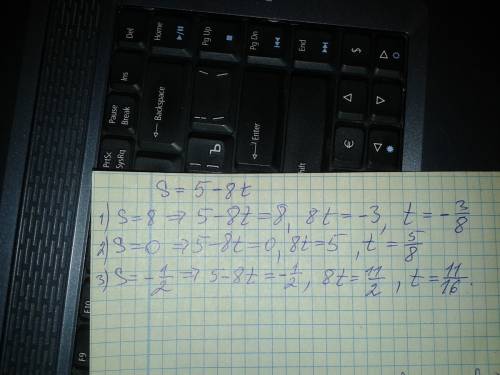 S = 5 - 8t
1) S = 8 ⇒ 5 - 8t = 8, 8t = -3, t = -3/8
2) S = 0 ⇒ 5 - 8t = 0, 8t = 5, t = 5/8
3) S = -1/2 ⇒ 5 - 8t = -1/2, 8t = 11/2, t = 11/16.
Del
Home
Pg Up
Pg Dn
End
Ins
Pause
Break
Backspace
PrtSc
SysRq
Enter
Ъ
$
€
F10
F9